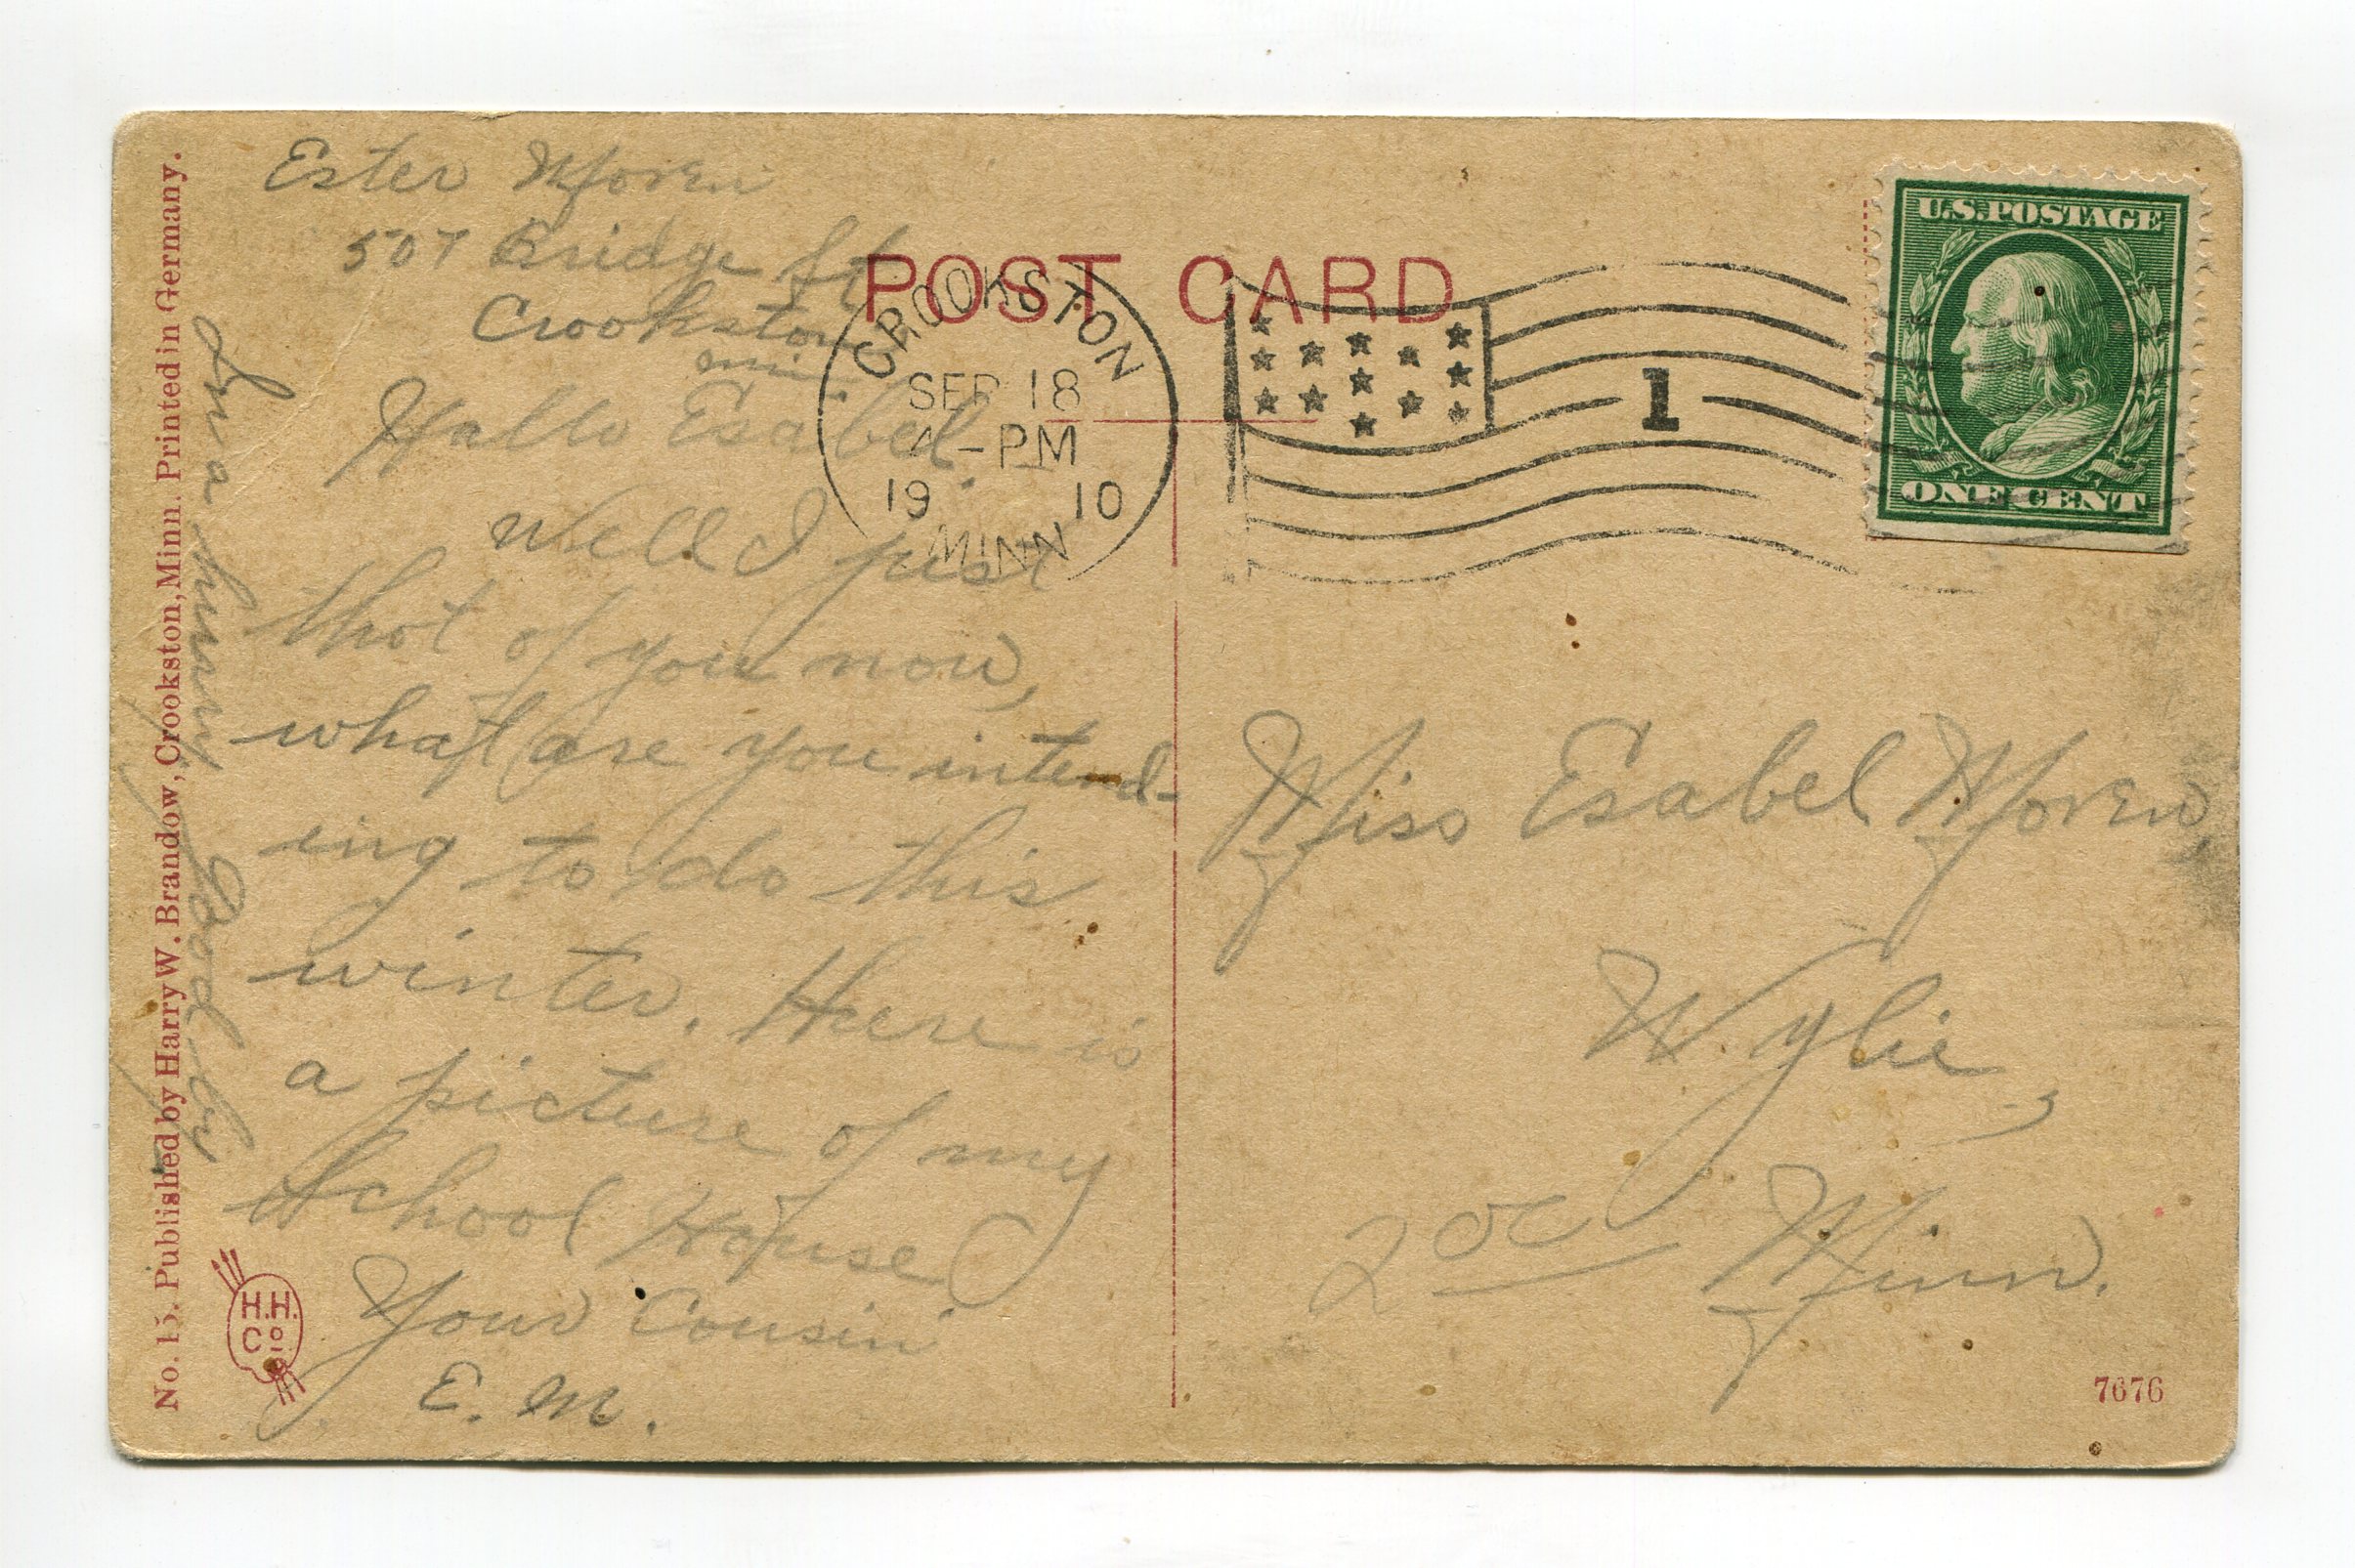 Ester Moren
507 Bridge St
Crookston
Minn.
Hallo Esabel.
Well I just
thot of you now,
what are you intend-
ing to do this
winter. Here is
a picture of my
School House
Your Cousin
E. M.
In a hurry Good by
No. 15. Published by Harry W. Brandow, Crookston, Minn. Printed in Germany.
H.H.
Co.
POST CARD
CROOKSTON
SEP 18
4-PM
19 10
MINN
1
U.S. POSTAGE
ONE CENT
Miss Esabel Moren,
Wylie,
Minn.
20c
7676